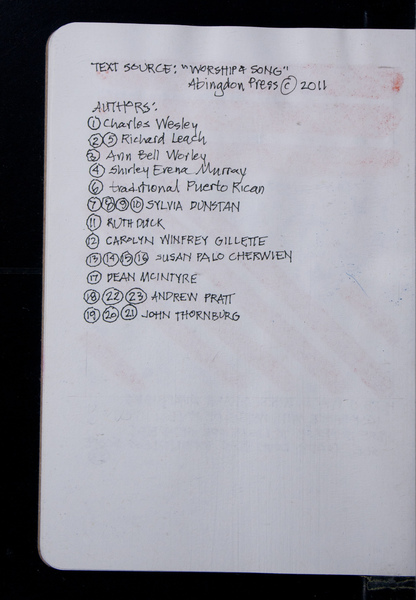 TEXT SOURCE: "WORSHIP & SONG"
Abingdon Press © 2011
AUTHORS:
① Charles Wesley
② ⑤ Richard Leach
③ Ann Bell Worley
④ Shirley Erena Murray
⑥ traditional Puerto Rican
⑦ ⑧ ⑨ ⑩ SYLVIA DUNSTAN
⑪ RUTH DUCK
⑫ CAROLYN WINFREY GILLETTE
⑬ ⑭ ⑮ ⑯ SUSAN PALO CHERWIEN
⑰ DEAN MCINTYRE
⑱ ㉒ ㉓ ANDREW PRATT
⑲ ⑳ ㉑ JOHN THORNBURG